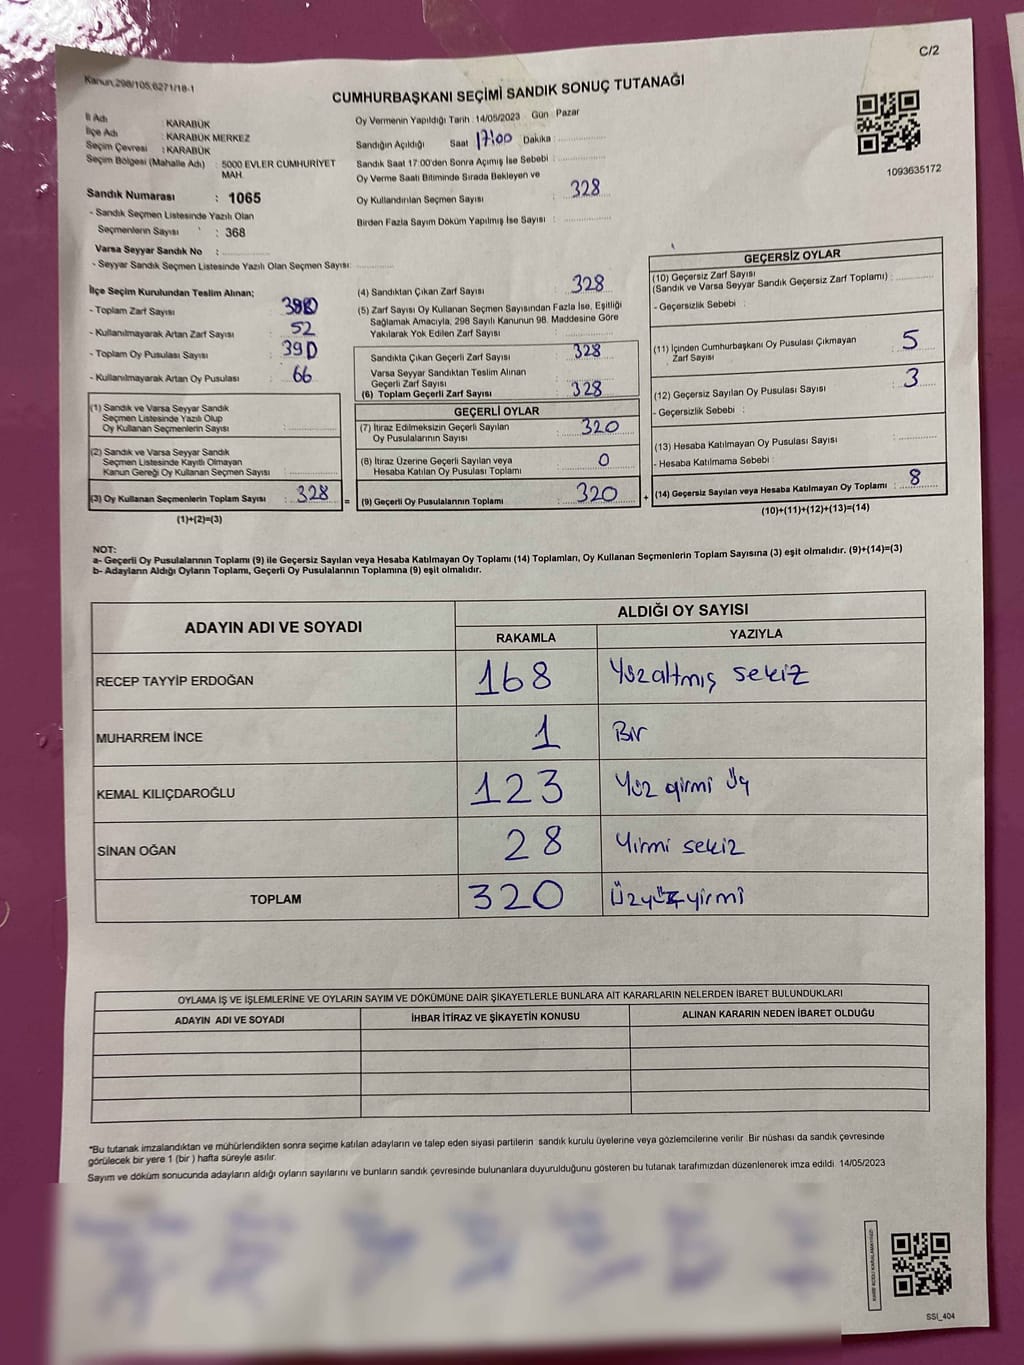 C/2
Kanun.298/105,6271/18-1
CUMHURBAŞKANI SEÇİMİ SANDIK SONUÇ TUTANAĞI
İl Adı : KARABÜK
İlçe Adı : KARABÜK MERKEZ
Seçim Çevresi : KARABÜK
Seçim Bölgesi (Mahalle Adı) : 5000 EVLER CUMHURİYET
MAH.
Sandık Numarası : 1065
- Sandık Seçmen Listesinde Yazılı Olan
Seçmenlerin Sayısı : 368
Varsa Seyyar Sandık No :
- Seyyar Sandık Seçmen Listesinde Yazılı Olan Seçmen Sayısı:
Oy Vermenin Yapıldığı Tarih : 14/05/2023 Gün : Pazar
Sandığın Açıldığı Saat 17:00 Dakika
Sandık Saat 17:00'den Sonra Açımış İse Sebebi :
Oy Verme Saati Bitiminde Sırada Bekleyen ve
Oy Kullandırılan Seçmen Sayısı : 328
Birden Fazla Sayım Döküm Yapılmış İse Sayısı :
1093635172
İlçe Seçim Kurulundan Teslim Alınan;
- Toplam Zarf Sayısı
- Kullanılmayarak Artan Zarf Sayısı : 52
- Toplam Oy Pusulası Sayısı : 390
- Kullanılmayarak Artan Oy Pusulası : 66
(1) Sandık ve Varsa Seyyar Sandık
Seçmen Listesinde Yazılı Olup
Oy Kullanan Seçmenlerin Sayısı :
(2) Sandık ve Varsa Seyyar Sandık
Seçmen Listesinde Kayıtlı Olmayan
Kanun Gereği Oy Kullanan Seçmen Sayısı :
(3) Oy Kullanan Seçmenlerin Toplam Sayısı : 328
(1)+(2)=(3)
(4) Sandıktan Çıkan Zarf Sayısı : 328
(5) Zarf Sayısı Oy Kullanan Seçmen Sayısından Fazla İse, Eşitliği
Sağlamak Amacıyla, 298 Sayılı Kanunun 98. Maddesine Göre
Yakılarak Yok Edilen Zarf Sayısı :
Sandıkta Çıkan Geçerli Zarf Sayısı : 328
Varsa Seyyar Sandıktan Teslim Alınan
Geçerli Zarf Sayısı
(6) Toplam Geçerli Zarf Sayısı : 328
GEÇERLİ OYLAR
(7) İtiraz Edilmeksizin Geçerli Sayılan
Oy Pusulalarının Sayısı : 320
(8) İtiraz Üzerine Geçerli Sayılan veya
Hesaba Katılan Oy Pusulası Toplamı : 0
= (9) Geçerli Oy Pusulalarının Toplamı : 320
GEÇERSİZ OYLAR
(10) Geçersiz Zarf Sayısı
(Sandık ve Varsa Seyyar Sandık Geçersiz Zarf Toplamı) :
- Geçersizlik Sebebi :
(11) İçinden Cumhurbaşkanı Oy Pusulası Çıkmayan
Zarf Sayısı : 5
(12) Geçersiz Sayılan Oy Pusulası Sayısı : 3
- Geçersizlik Sebebi :
(13) Hesaba Katılmayan Oy Pusulası Sayısı :
- Hesaba Katılmama Sebebi :
+ (14) Geçersiz Sayılan veya Hesaba Katılmayan Oy Toplamı : 8
(10)+(11)+(12)+(13)=(14)
NOT:
a- Geçerli Oy Pusulalarının Toplamı (9) ile Geçersiz Sayılan veya Hesaba Katılmayan Oy Toplamı (14) Toplamları, Oy Kullanan Seçmenlerin Toplam Sayısına (3) eşit olmalıdır. (9)+(14)=(3)
b- Adayların Aldığı Oyların Toplamı, Geçerli Oy Pusulalarının Toplamına (9) eşit olmalıdır.
ADAYIN ADI VE SOYADI
ALDIĞI OY SAYISI
RAKAMLA YAZIYLA
RECEP TAYYİP ERDOĞAN 168 Yüzaltmış sekiz
MUHARREM İNCE 1 Bir
KEMAL KILIÇDAROĞLU 123 Yüz yirmi üç
SİNAN OĞAN 28 Yirmi sekiz
TOPLAM 320 Üzyüzyirmi
OYLAMA İŞ VE İŞLEMLERİNE VE OYLARIN SAYIM VE DÖKÜMÜNE DAİR ŞİKAYETLERLE BUNLARA AİT KARARLARIN NELERDEN İBARET BULUNDUKLARI
ADAYIN ADI VE SOYADI İHBAR İTİRAZ VE ŞİKAYETİN KONUSU ALINAN KARARIN NEDEN İBARET OLDUĞU
*Bu tutanak imzalandıktan ve mühürlendikten sonra seçime katılan adayların ve talep eden siyasi partilerin sandık kurulu üyelerine veya gözlemcilerine verilir. Bir nüshası da sandık çevresinde
görülecek bir yere 1 (bir ) hafta süreyle asılır.
Sayım ve döküm sonucunda adayların aldığı oyların sayılarını ve bunların sandık çevresinde bulunanlara duyurulduğunu gösteren bu tutanak tarafımızdan düzenlenerek imza edildi. 14/05/2023
SSI_404